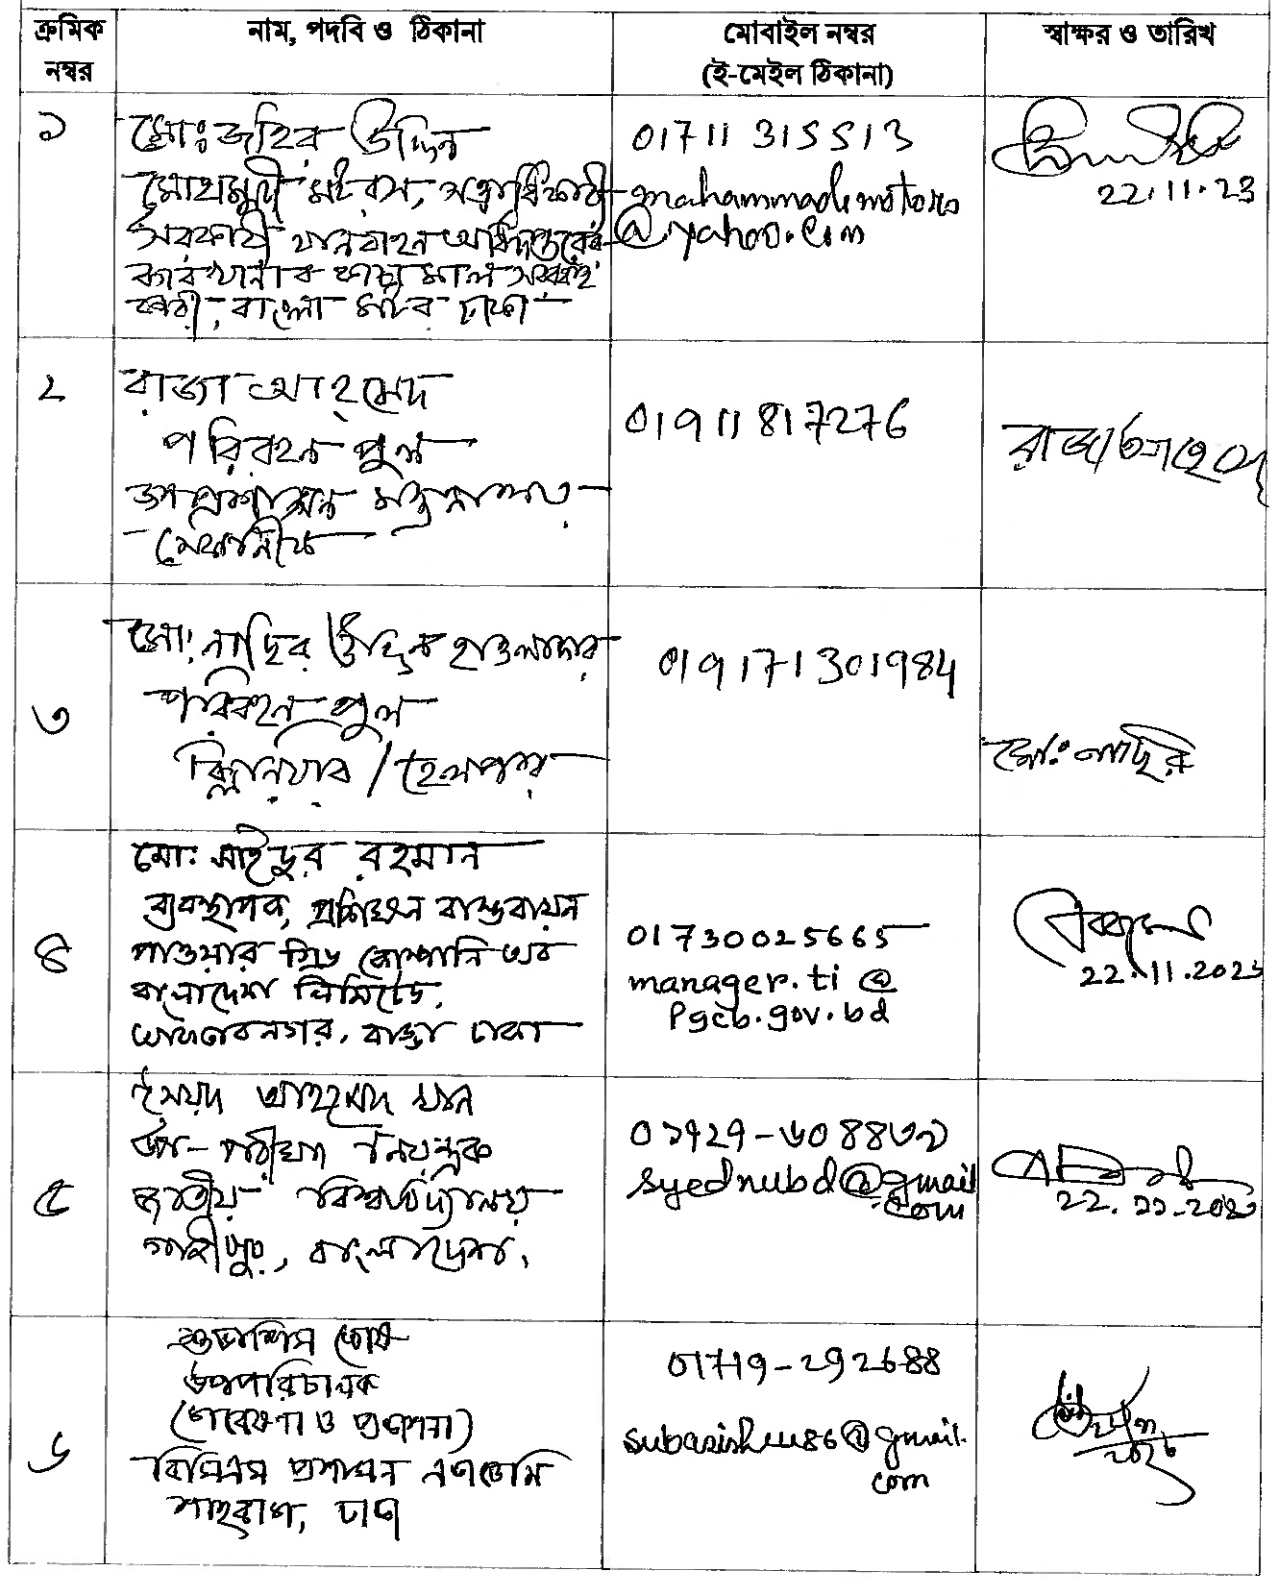 ক্রমিক নম্বর
নাম, পদবি ও ঠিকানা
মোবাইল নম্বর
(ই-মেইল ঠিকানা)
স্বাক্ষর ও তারিখ
১
মোঃ জহির উদ্দিন
মোহাম্মদী মটরস, সত্ত্বাধিকারী
সরকারী যানবাহন অধিদপ্তরের
কারখানার কাচা মাল সরবরাহ
কারী, বাংলা মটর ঢাকা
01711 315513
mahammadimotors
@yahoo.com
22.11.23
২
রাজা আহমেদ
পরিবহন পুল
জনপ্রশাসন মন্ত্রনালয়
মেকানীক
01911817276
রাজা আহমেদ
৩
মো: নাছির উদ্দিন হাওলাদার
পরিবহন পুল
ক্লিনার / হেলপার
019171301984
মো: নাছির
৪
মো: সাইদুর রহমান
ব্যবস্থাপক, প্রশিক্ষন বাস্তবায়ন
পাওয়ার গ্রিড কোম্পানি অব
বাংলাদেশ লিমিটেড,
আফতাবনগর, বাড্ডা ঢাকা
01730025665
manager.ti@
pgcb.gov.bd
22.11.2023
৫
সৈয়দ আহমেদ খান
উপ-পরীক্ষা নিয়ন্ত্রক
জাতীয় বিশ্ববিদ্যালয়
গাজীপুর, বাংলাদেশ,
syednubd@gmail
com
৬
শুভাশিস ঘোষ
উপপরিচালক
(গবেষণা ও প্রকাশনা)
বিসিএস প্রশাসন একাডেমি
শাহবাগ, ঢাকা
01719-292688
@gmail.
com